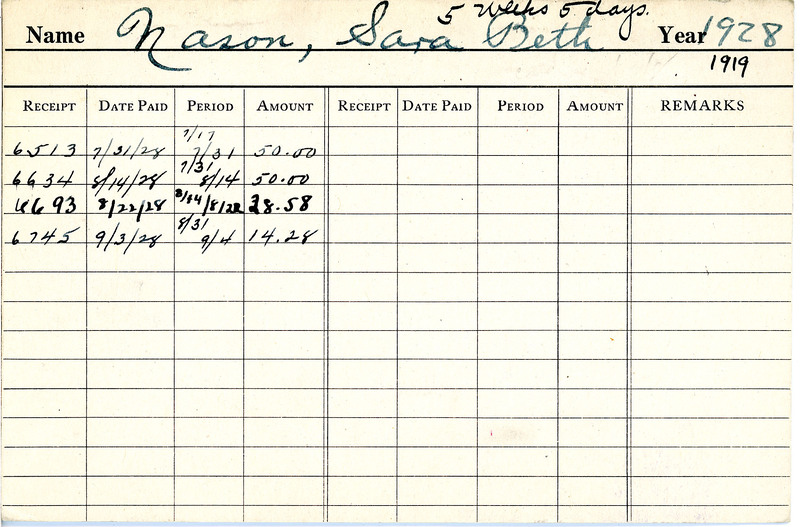 5 Weeks 5 days.
Name Nason, Sara Beth Year 1928
1919
RECEIPT DATE PAID PERIOD AMOUNT RECEIPT DATE PAID PERIOD AMOUNT REMARKS
7/17
6513 7/31/28 7/31 50.00
7/31
6634 8/14/28 8/14 50.00
6693 8/22/28 8/14/8/22 28.58
8/31
6745 9/3/28 9/4 14.28